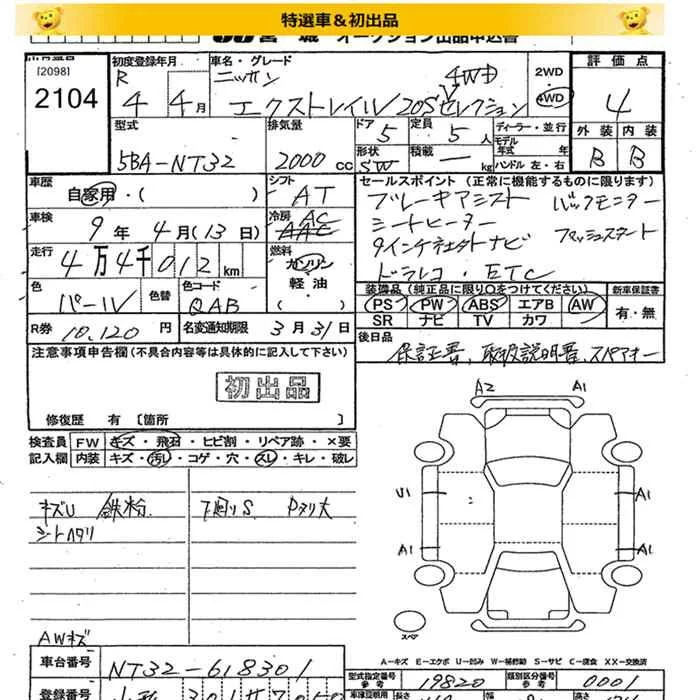 特選車&初出品
宮城 オークション出品申込書
[2098]
2104
初度登録年月
R 4 年 4 月
車名・グレード
ニッサン 4WD
エクストレイル 20S Vセレクション
2WD
4WD
評価点
4
外装 内装
B B
型式
5BA-NT32
排気量
2000 cc
ドア 5
定員 5 人
形状 SW
積載 — kg
ディーラー・並行
モデル年式 年
ハンドル 左・右
車歴
自家用・( )
シフト
AT
車検
9 年 4 月 (13 日)
冷房
AC
AAC
走行
4万4千012 km
燃料
ガソリン
軽油
( )
色
パール
色替
色コード
QAB
R券
10,120 円
名変通知期限
3月31日
セールスポイント (正常に機能するものに限ります)
ブレーキアシスト バックモニター
シートヒーター
9インチコネクトナビ プッシュスタート
ドラレコ・ETC
装備品 (純正品に限り○をつけてください)
PS PW ABS エアB AW
SR ナビ TV カワ
新車保証書
有・無
後日品
保証書、取扱説明書、スペアキー
注意事項申告欄(不具合内容等は具体的に記入して下さい)
初出品
修復歴 有 〔箇所 〕
検査員記入欄
FW キズ・飛石・ヒビ割・リペア跡・×要
内装 キズ・汚れ・コゲ・穴・スレ・キレ・破レ
キズU 鉄粉 下廻りS
シートヘタリ
AWキズ
A2 A1
U1 A1
A1 A1
スペア
A-キズ E-エクボ U-凹み W-補修跡 S-サビ C-腐食 XX-交換済
車台番号
NT32-618301
型式指定番号
参考
19820
類別区分番号
参考
0001
登録番号